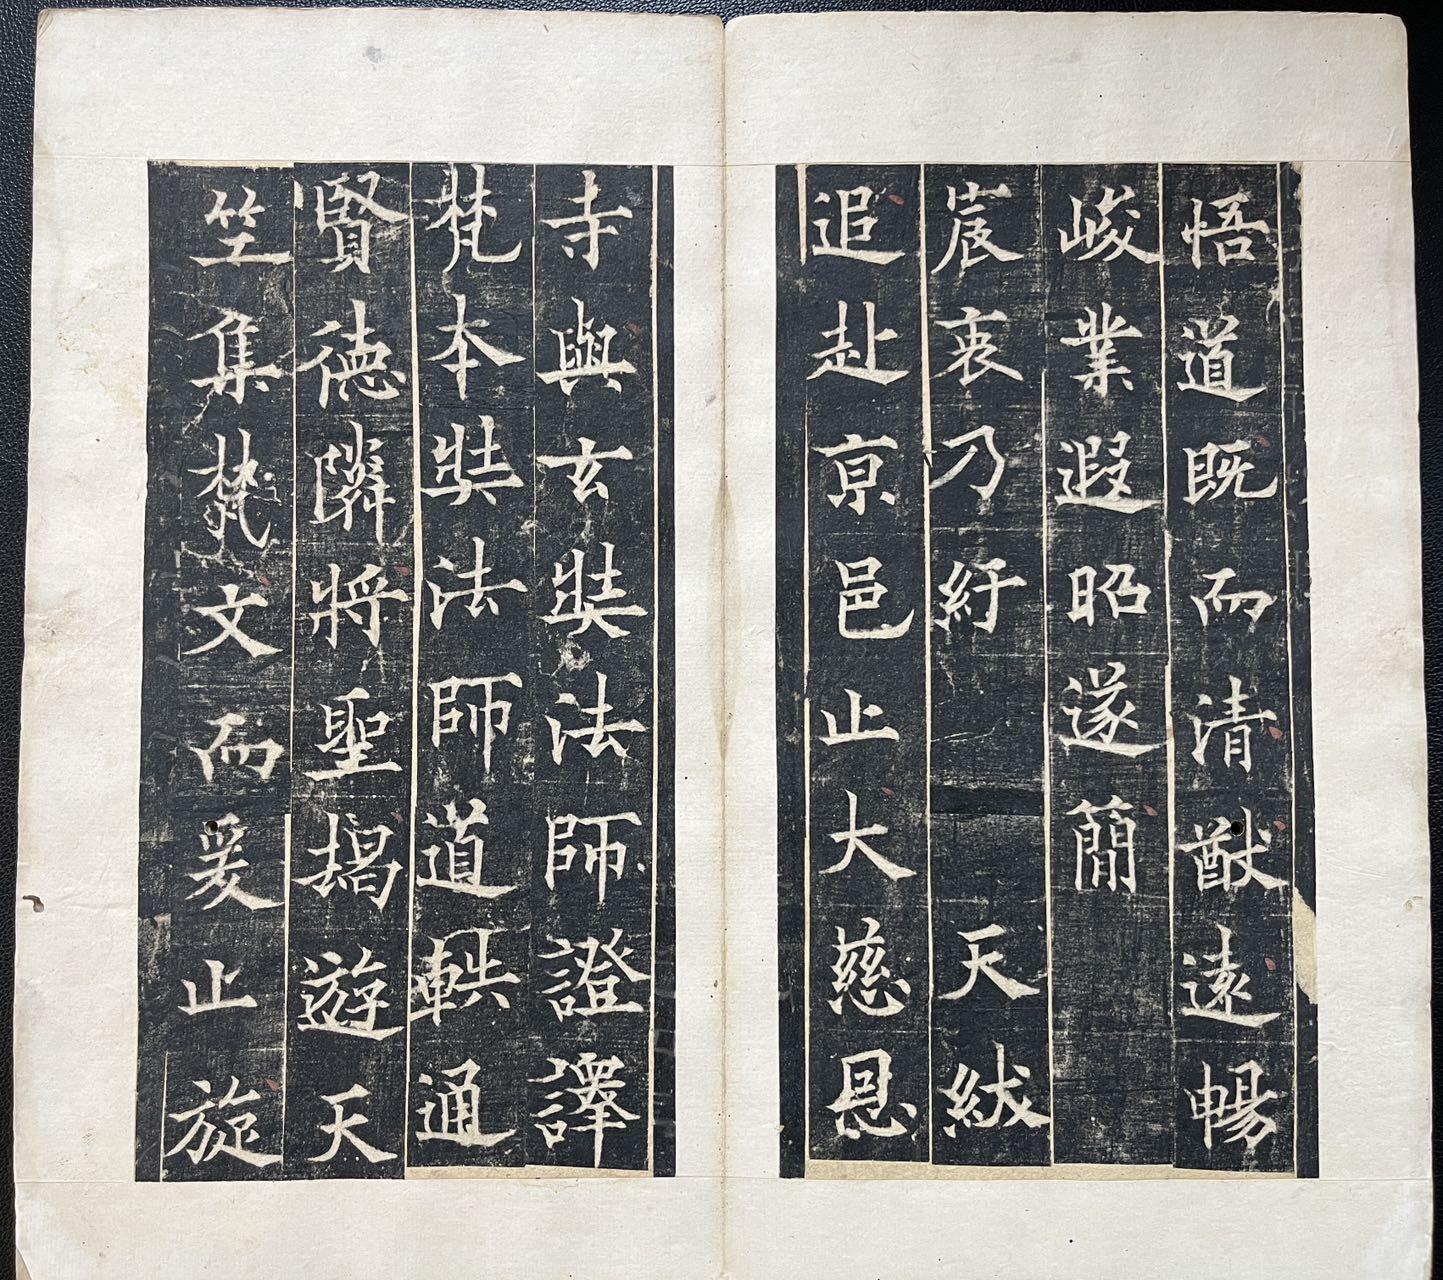 悟道既而清猷遠暢
峻業遐昭遂簡
宸衷乃紆天紱
追赴亰邑止大慈恩
寺與玄奘法師證譯
梵本奘法師道軼通
賢德隣將聖朅遊天
竺集梵文而爰止旋